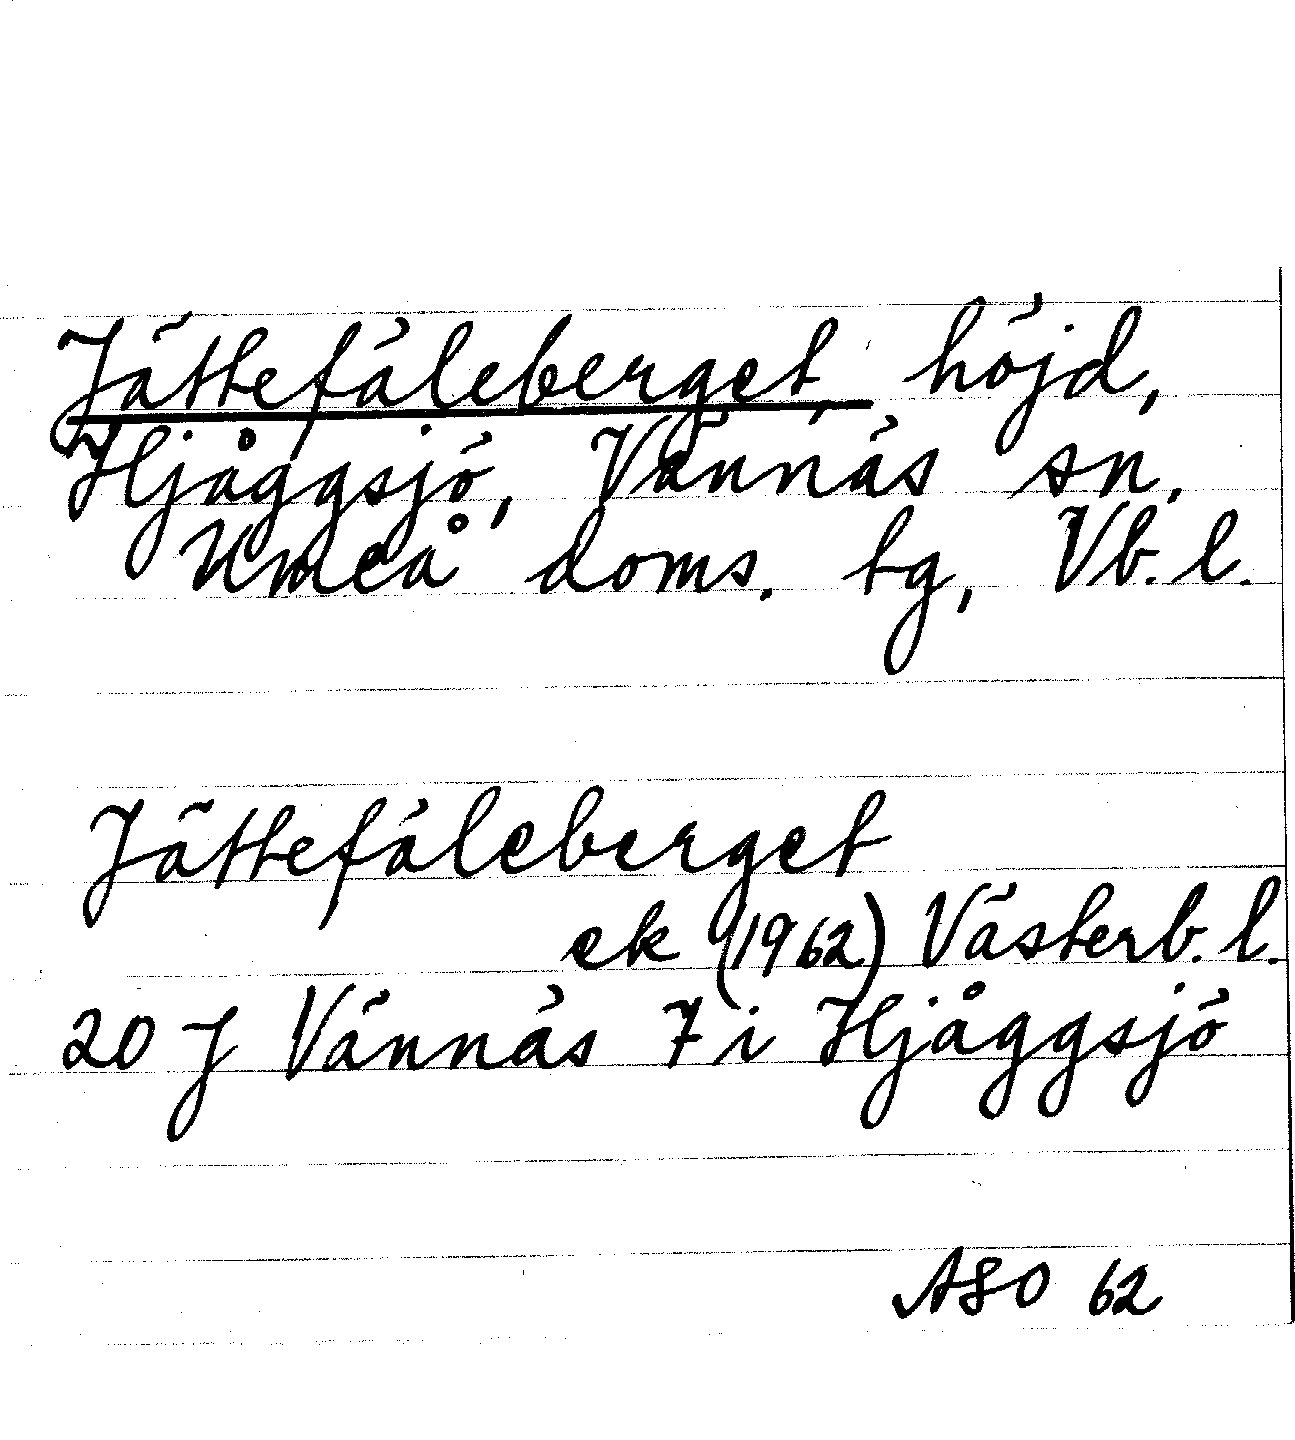 Jättefäleberget, höjd,
Hjåggsjö, Vännäs sn.
Umeå doms. tg, Vb. l.
Jättefäleberget
ek (1962) Västerb. l.
20 J Vännäs 7 i Hjåggsjö
ASO 62